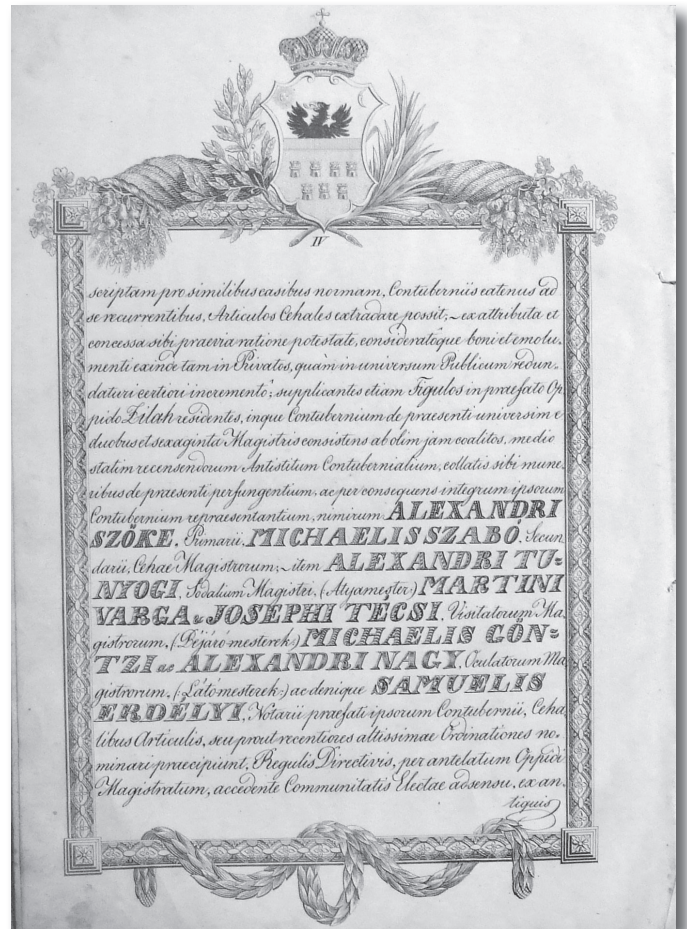 IV
scriptam pro similibus casibus normam, Contuberniis eatenus ad
se recurrentibus, Articulos Cehales extradare possit; ex attributa et
concessa sibi praevia ratione potestate, consideratôque boni et emolu-
menti exinde tam in Privatos, quàm in universum Publicum redun-
daturi certiori incrementô; supplicantes etiam Figulos in praefato Op-
pido Zilah residentes, inque Contubernium de praesenti universim e
duobus et sexaginta Magistris consistens ab olim jam coalitos, medio
statim recensendorum Antistitum Contubernialium, collatis sibi mune-
ribus de praesenti perfungentium, ac per consequens integrum ipsorum
Contubernium repraesentantium, nimirum ALEXANDRI
SZŐKE, Primarii, MICHAELIS SZABÓ, Secun
darii, Cehae Magistrorum; item ALEXANDRI TU-
NYOGI, Sodalium Magistri, (Atyamester) MARTINI
VARGA & JOSEPHI TÉCSI, Visitatorum Ma
gistrorum, (: Béjáró mesterek :) MICHAELIS GÖN-
TZI ac ALEXANDRI NAGY, Oculatorum Ma
gistrorum, (: Látó mesterek :) ac denique SAMUELIS
ERDÉLYI, Notarii praefati ipsorum Contubernii, Ceha
libus Articulis, seu prout recentiores altissimae Ordinationes no-
minari praecipiunt, Regulis Directivis, per antelatum Oppidi
Magistratum, accedente Communitatis Electae adsensu, ex an-
tiquis